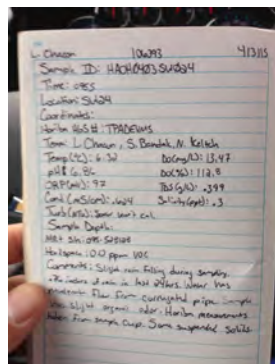 L. Chacon 106293 4/3/15
Sample ID: HACH0403SW024
Time: 0855
Location: SW24
Coordinates:
Horiba #: TPADEVMS
Team: L Chacon, S. Bandak, N. Keltch
Temp(°C): 6.32 DO(mg/L): 13.47
pH: 6.86 DO(%): 112.8
ORP(mV): 97 TDS(g/L): .399
Cond (mS/cm): .624 Salinity(ppt): .3
Turb(NTU): Sensor won't cal
Sample Depth:
Headspace: 0.0 ppm VOC
Comments: Slight rain falling during sampling.
inches of rain in last 24rs. Weir has
flow from corrugated pipe. Sample
has slight organic odor. Horiba measurements
taken from sample cup. Some suspended solids.